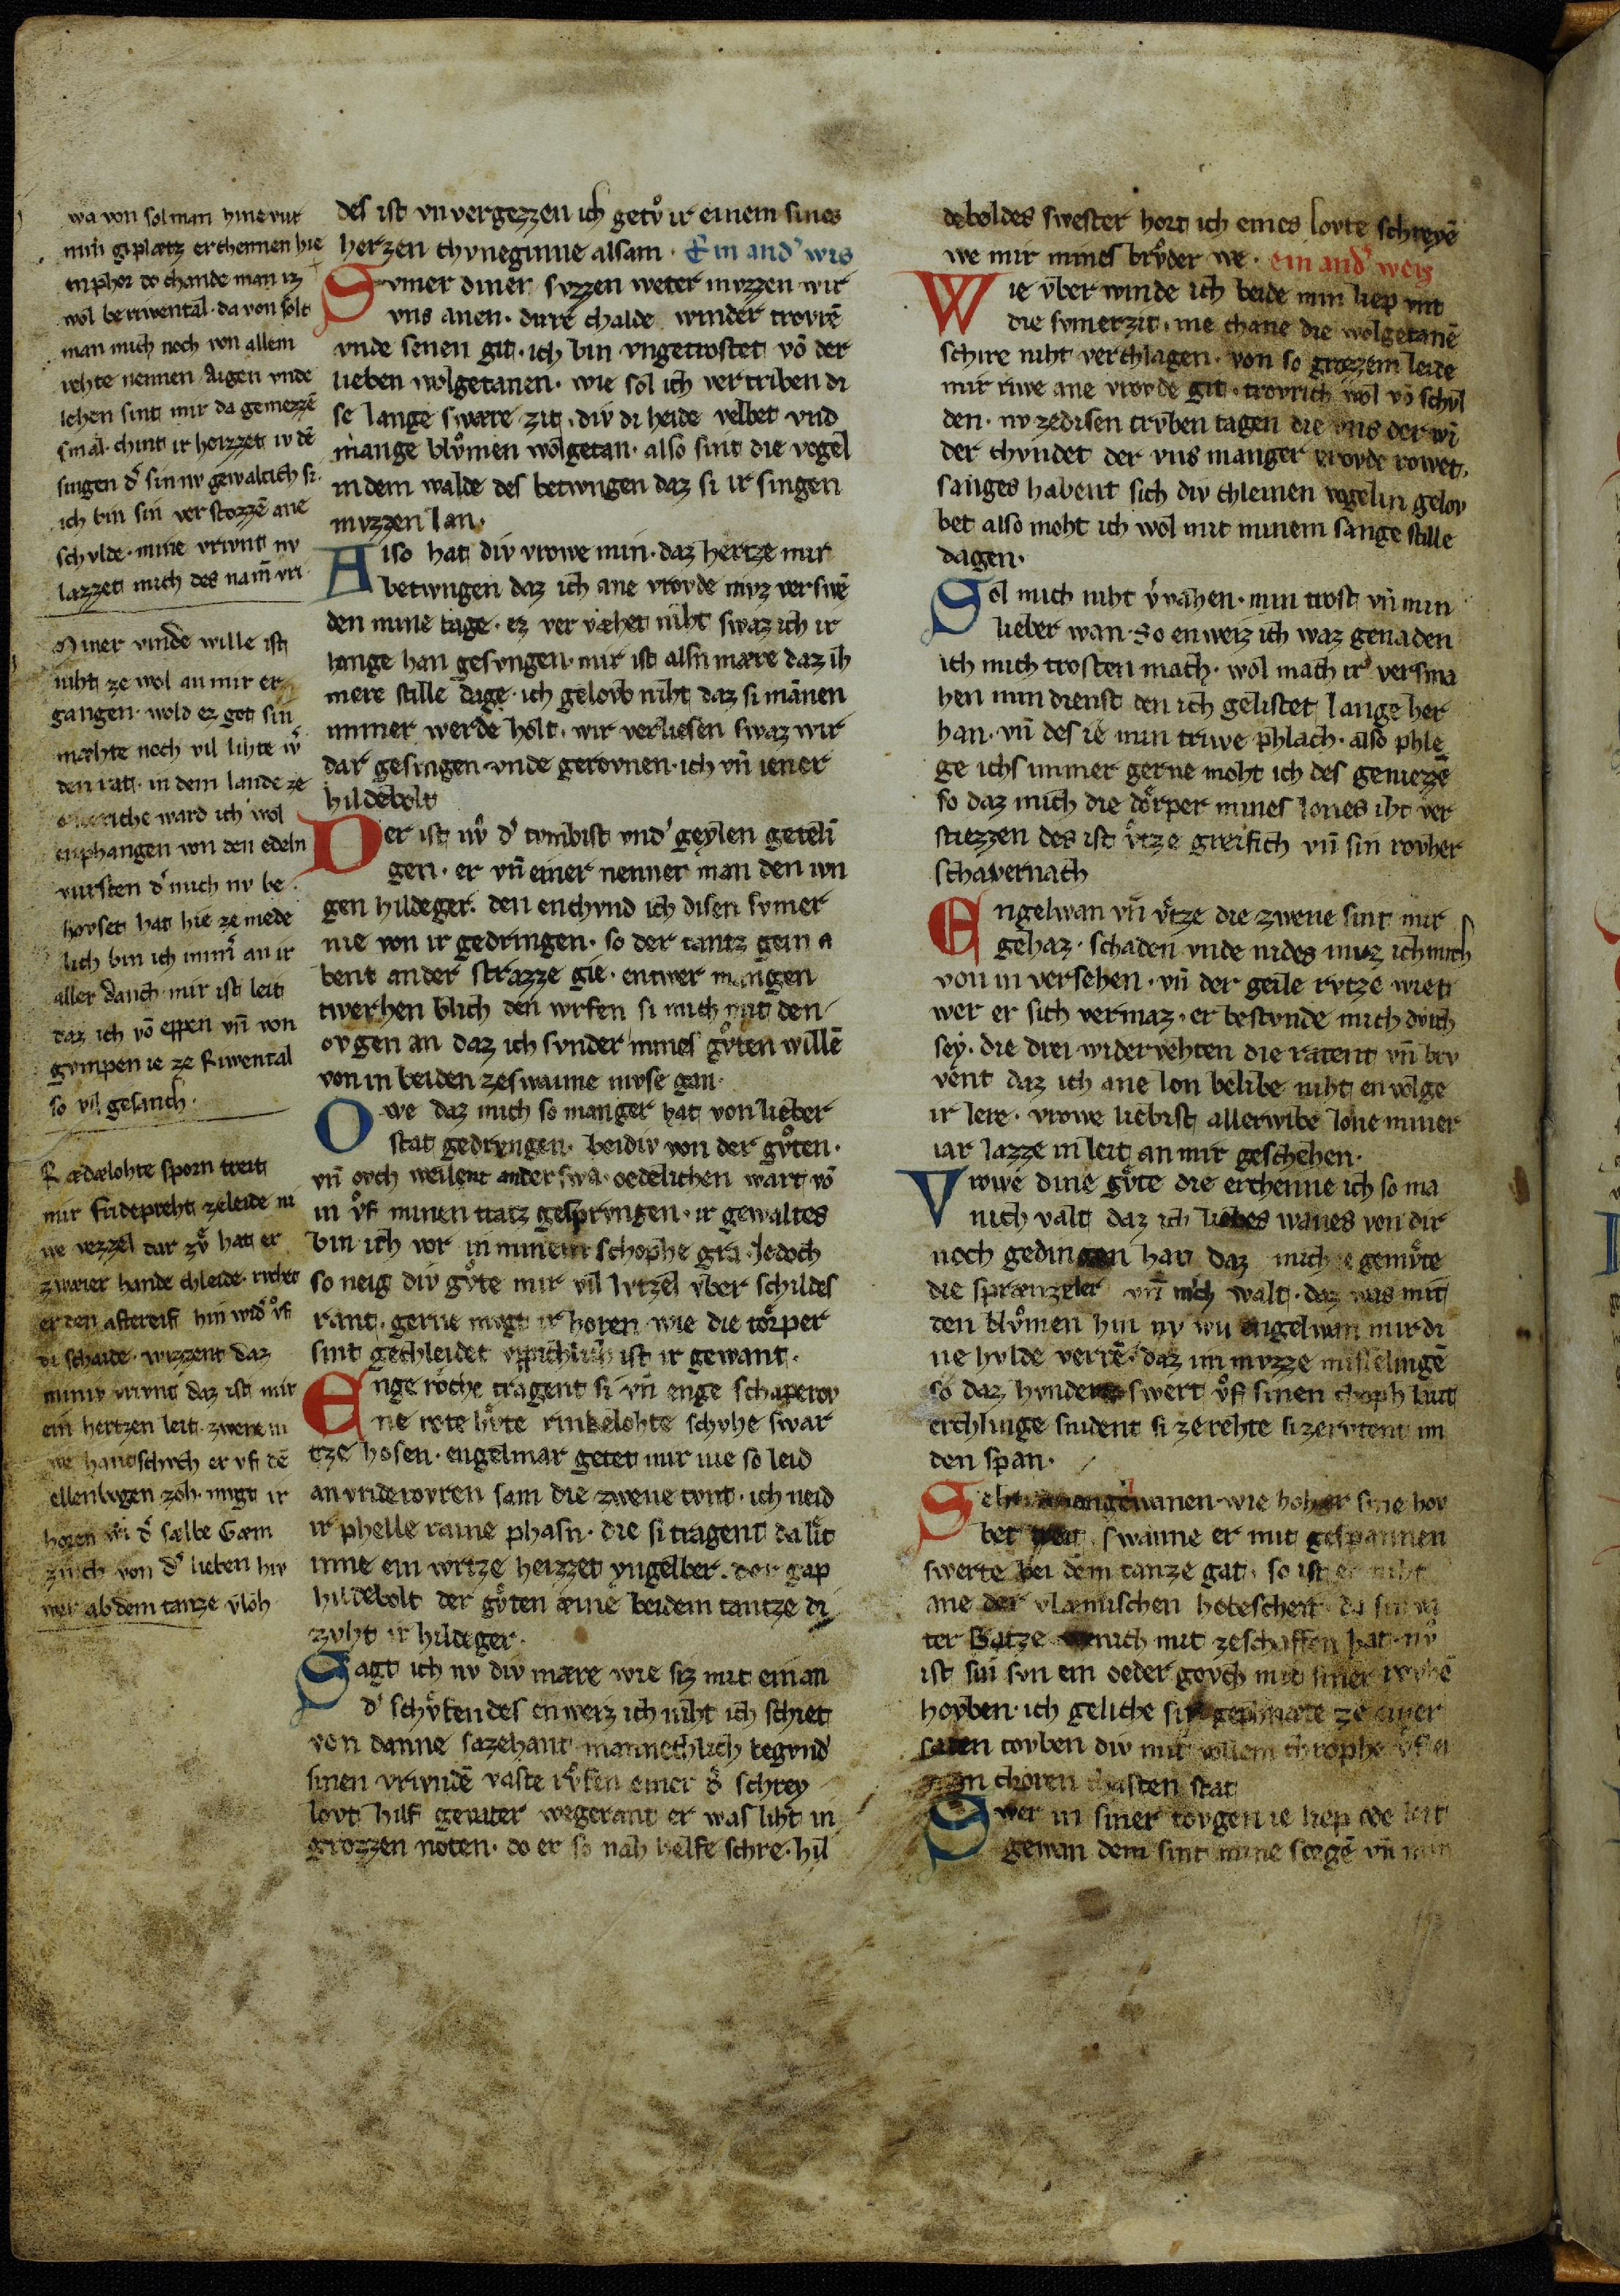 wa von sol man hine vur
min giplætz erchennen hie
enphor do chande man iz
wol be riwental. da von solt
man mich noch von allem
rehte nennen Aigen vnde
lehen sint mir da gemezzē
smal. chint ir heizzet iv dē
singen d͛ sin nv gewaltich si.
ich bin sin verstozzē ane
schvlde. mine vrivnt nv
lazzet mich des nam̄ vri
Miner vinde wille ist
niht ze wol an mir er
gangen. wold ez got sin
mæhte noch vil lihte w͛
den rat. in dem lande ze
ward ich wol
enphangen von den edeln
vursten d͛ mich nv be
hovset hat hie ze mede
lich bin ich imm͛ an ir
aller danch mir ist leit
daz ich vō eppen vn̄ von
gvmpen ie ze Riwental
so vil gesanch.
Rædælohte sporn treit
mir fridepreht zeleide ni
we vezzel dar zvͦ hat er
zwaier hande chleide. richet
er den aftereif hin wid͛ vͦf
di schaide. wizzent daz
miniv vrivnt daz ist mir
ein hertzen leit. zwene ni
we hantschvch er vf dē
ellenbogen zoh. mugt ir
horen wi d͛ sælbe Gæm
zinch von d͛ lieben hiv
wer ab dem tanze vloh
des ist vn vergezzen ich getvͦ ir einem sines
herzen chvneginne alsam. Ein and͛ wis
Svmer diner svzzen weter mvzzen wir
vns anen. dirre chalde winder trovrē
vnde senen git. ich bin vngetrostet vō der
lieben wolgetanen. wie sol ich vertriben di
se lange swære zit. div di heide velbet vnd
mange blvͦmen wolgetan. also sint die vogel
in dem walde des betwngen daz si ir singen
mvzzen lan.
Also hat div vrowe min. daz hertze mir
betwngen daz ich ane vrovde mvz verswē
den mine tage. ez ver væhet niht swaz ich ir
lange han gesvngen. mir ist alsn mære daz ih
mere stille dage. ich gelovb niht daz si mānen
immer werde holt. wir verliesen swaz wir
dar gesingen vnde gerovnen. ich vn̄ iener
hildebolt
Der ist nvͦ d͛ tvmbist vnd͛ geylen geteli
gen. er vn̄ einer nennet man den ivn
gen hildeger. den enchvnd ich disen svmer
nie von ir gedringen. so der tantz gein a
bent an der strazze gie. entwer mangen
twerhen blich den wrfen si mich mit den
ovgen an daz ich svnder mines gvͦten willē
von in beiden ze swaime mvse gan.
Owe daz mich so manger hat von lieber
stat gedrvngen. beidiv von der gvͦten.
vn̄ ovch weilent anderswa. oedelichen wart vō
in vͦf minen tratz gesprvngen. ir gewaltes
bin ich vor in minem schophe gra. Jedoch
so neig div gvͦte mir vil lvtzel vber schildes
rant. gerne mvgt ir horen wie die torper
sint gechleidet vppichlich ist ir gewant.
Enge röche tragent si vn̄ enge schaperov
ne rote hvͦte rinkelohte schvhe swar
tze hosen. engelmar getet mir nie so leid
an vriderovren sam die zwene tvnt. ich neid
ir phelleraine phasn. die si tragent da lit
inne ein wrtze heizzet yngelber. der gap
hildebolt der gvͦten aine beidem tantze di
zvht ir hildeger.
Sagt ich nv div mære wie siz mit einan
d͛ schvͦfen des enweiz ich niht ich schiet
von danne sazehant mannechlich begvnd
sinen vrivndē vaste rvͦfen einer d͛ schrey
lovt hilf gevater wegerant er was liht in
grozzen noten. do er so nah helfe schre. hil
deboldes swester hort ich eines lovte schreyē
we mir mines brvͦder we. ein and͛ weis
Wie vber winde ich beide min liep vnt
die svmerzit. ine chane die wolgetanē
schire niht verchlagen. von so grozzem leide
mir riwe ane vrovde git. trovrich wol vō schvl
den. nv zedisen trvben tagen die vns der wi
der chvndet der vns manger vrovde rowet.
sanges habent sich div chleinen vogelin gelov
bet also moht ich wol mit minem sange stille
dagen.
Sol mich niht v͛vahen. min trost vn̄ min
lieber wan. So enweiz ich waz genaden
ich mich trosten mach. wol mach ir͛ versma
hen min dienst den ich gelistet lange her
han. vn̄ des ie min triwe phlach. also phle
ge ichs immer gerne moht ich des geniezē
so daz mich die dorper mines lones iht ver
stiezzen des ist vͦtze greifich vn̄ sin rovher
schavernach
Engelwan vn̄ vͦtze die zwene sint mir
gehaz. schaden vnde nides mvz ich mich
von in versehen. vn̄ der geile rvtze wiet
wer er sich vermaz. er bestvnde mich dvrch
sey. die drei widervehten die ratent vn̄ brv
vent daz ich ane lon belibe niht en volge
ir lere. vrowe liebist aller wibe lone miner
iar lazze in leit an mir geschehen.
Vrowe dine gvͦte die erchenne ich so ma
nich valt daz ich liebes wanes von dir
noch gedingen han daz mich gemvͦte
die sprænzeler vn̄ mich walt. daz was mit
den blvͦmen hin nv wil engelwan mir di
ne hvlde verrē. daz im mvzze misselingē
so daz hvnder swert vͦf sinen choph lvit
erchlinge snident si zerehte si zervtent im
den span.
Seht wie hoher sine hov
bet swanne er mit gespannen
swerte bei dem tanze gat. so ist er niht
ane der vlæmischen hoteschert da sin va
ter Batze mich mit zeschaffen hat. nvͦ
ist sin svn ein oeder govch mit siner rvhē
hovben. ich geliche sin gephnæte ze einer
saten tovben div mit vollem chrophe vͦf ei
nem choren chasten stat
Swer in siner tovgen ie liep ode leit
gewan dem sint mine sorgē vn̄ min